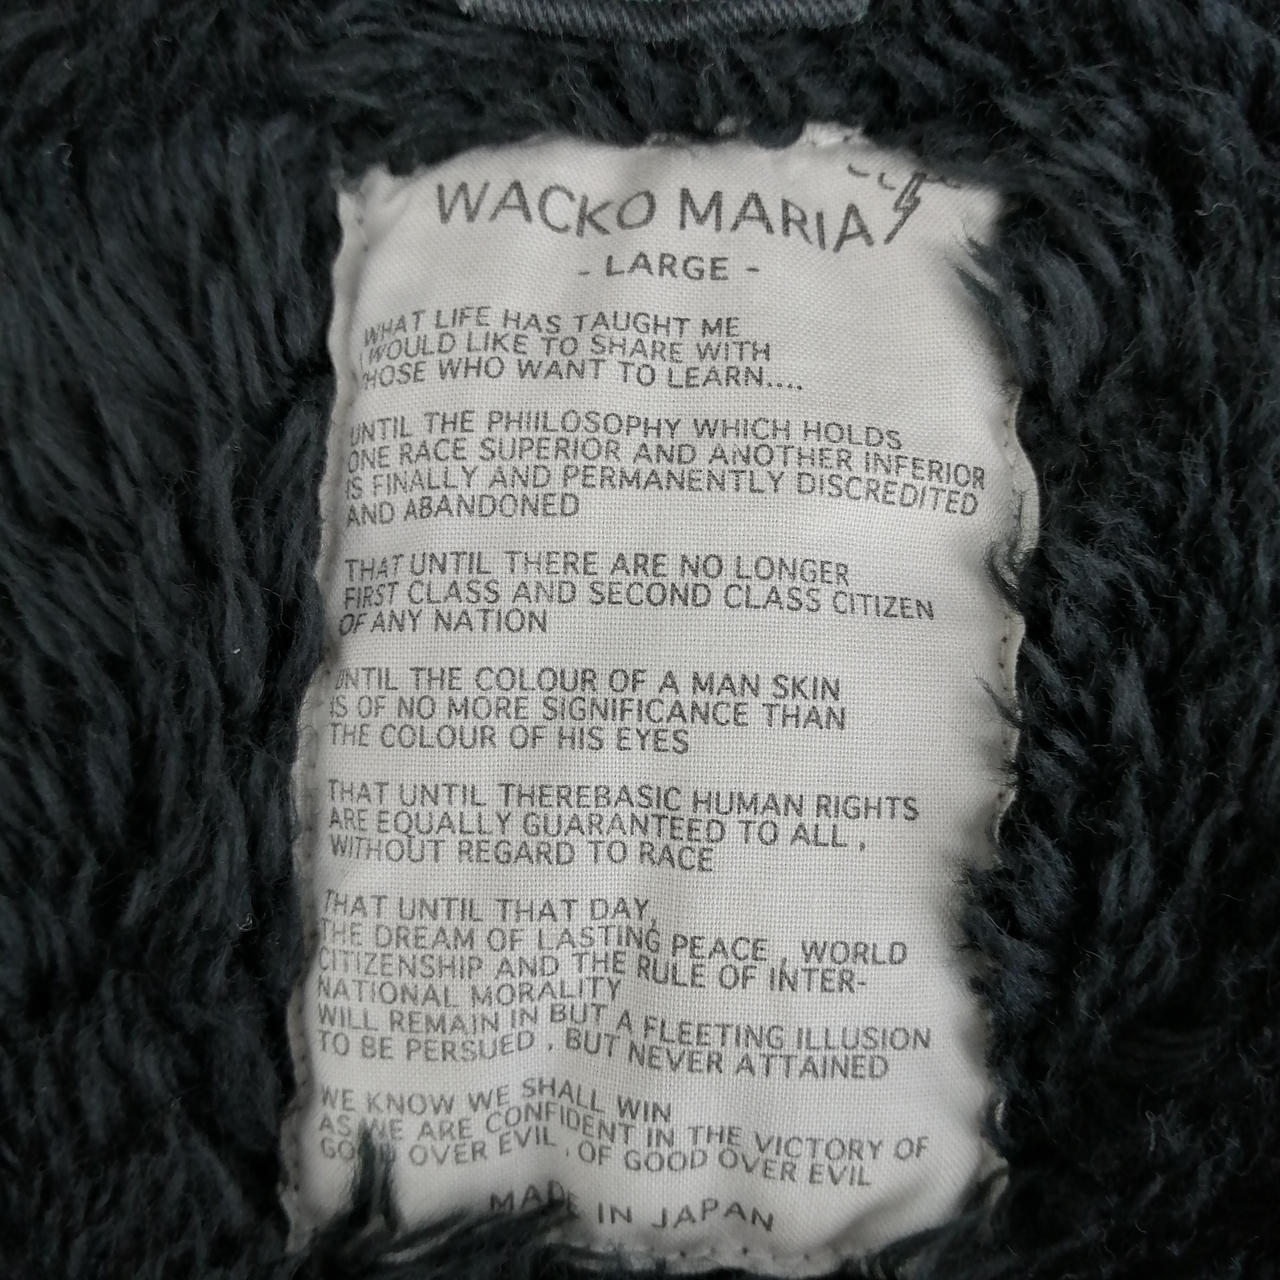 WACKO MARIA
- LARGE -
WHAT LIFE HAS TAUGHT ME
I WOULD LIKE TO SHARE WITH
THOSE WHO WANT TO LEARN....
UNTIL THE PHIILOSOPHY WHICH HOLDS
ONE RACE SUPERIOR AND ANOTHER INFERIOR
IS FINALLY AND PERMANENTLY DISCREDITED
AND ABANDONED
THAT UNTIL THERE ARE NO LONGER
FIRST CLASS AND SECOND CLASS CITIZEN
OF ANY NATION
UNTIL THE COLOUR OF A MAN SKIN
IS OF NO MORE SIGNIFICANCE THAN
THE COLOUR OF HIS EYES
THAT UNTIL THEREBASIC HUMAN RIGHTS
ARE EQUALLY GUARANTEED TO ALL ,
WITHOUT REGARD TO RACE
THAT UNTIL THAT DAY,
THE DREAM OF LASTING PEACE , WORLD
CITIZENSHIP AND THE RULE OF INTER-
NATIONAL MORALITY
WILL REMAIN IN BUT A FLEETING ILLUSION
TO BE PERSUED , BUT NEVER ATTAINED
WE KNOW WE SHALL WIN
AS WE ARE CONFIDENT IN THE VICTORY OF
GOOD OVER EVIL , OF GOOD OVER EVIL
MADE IN JAPAN